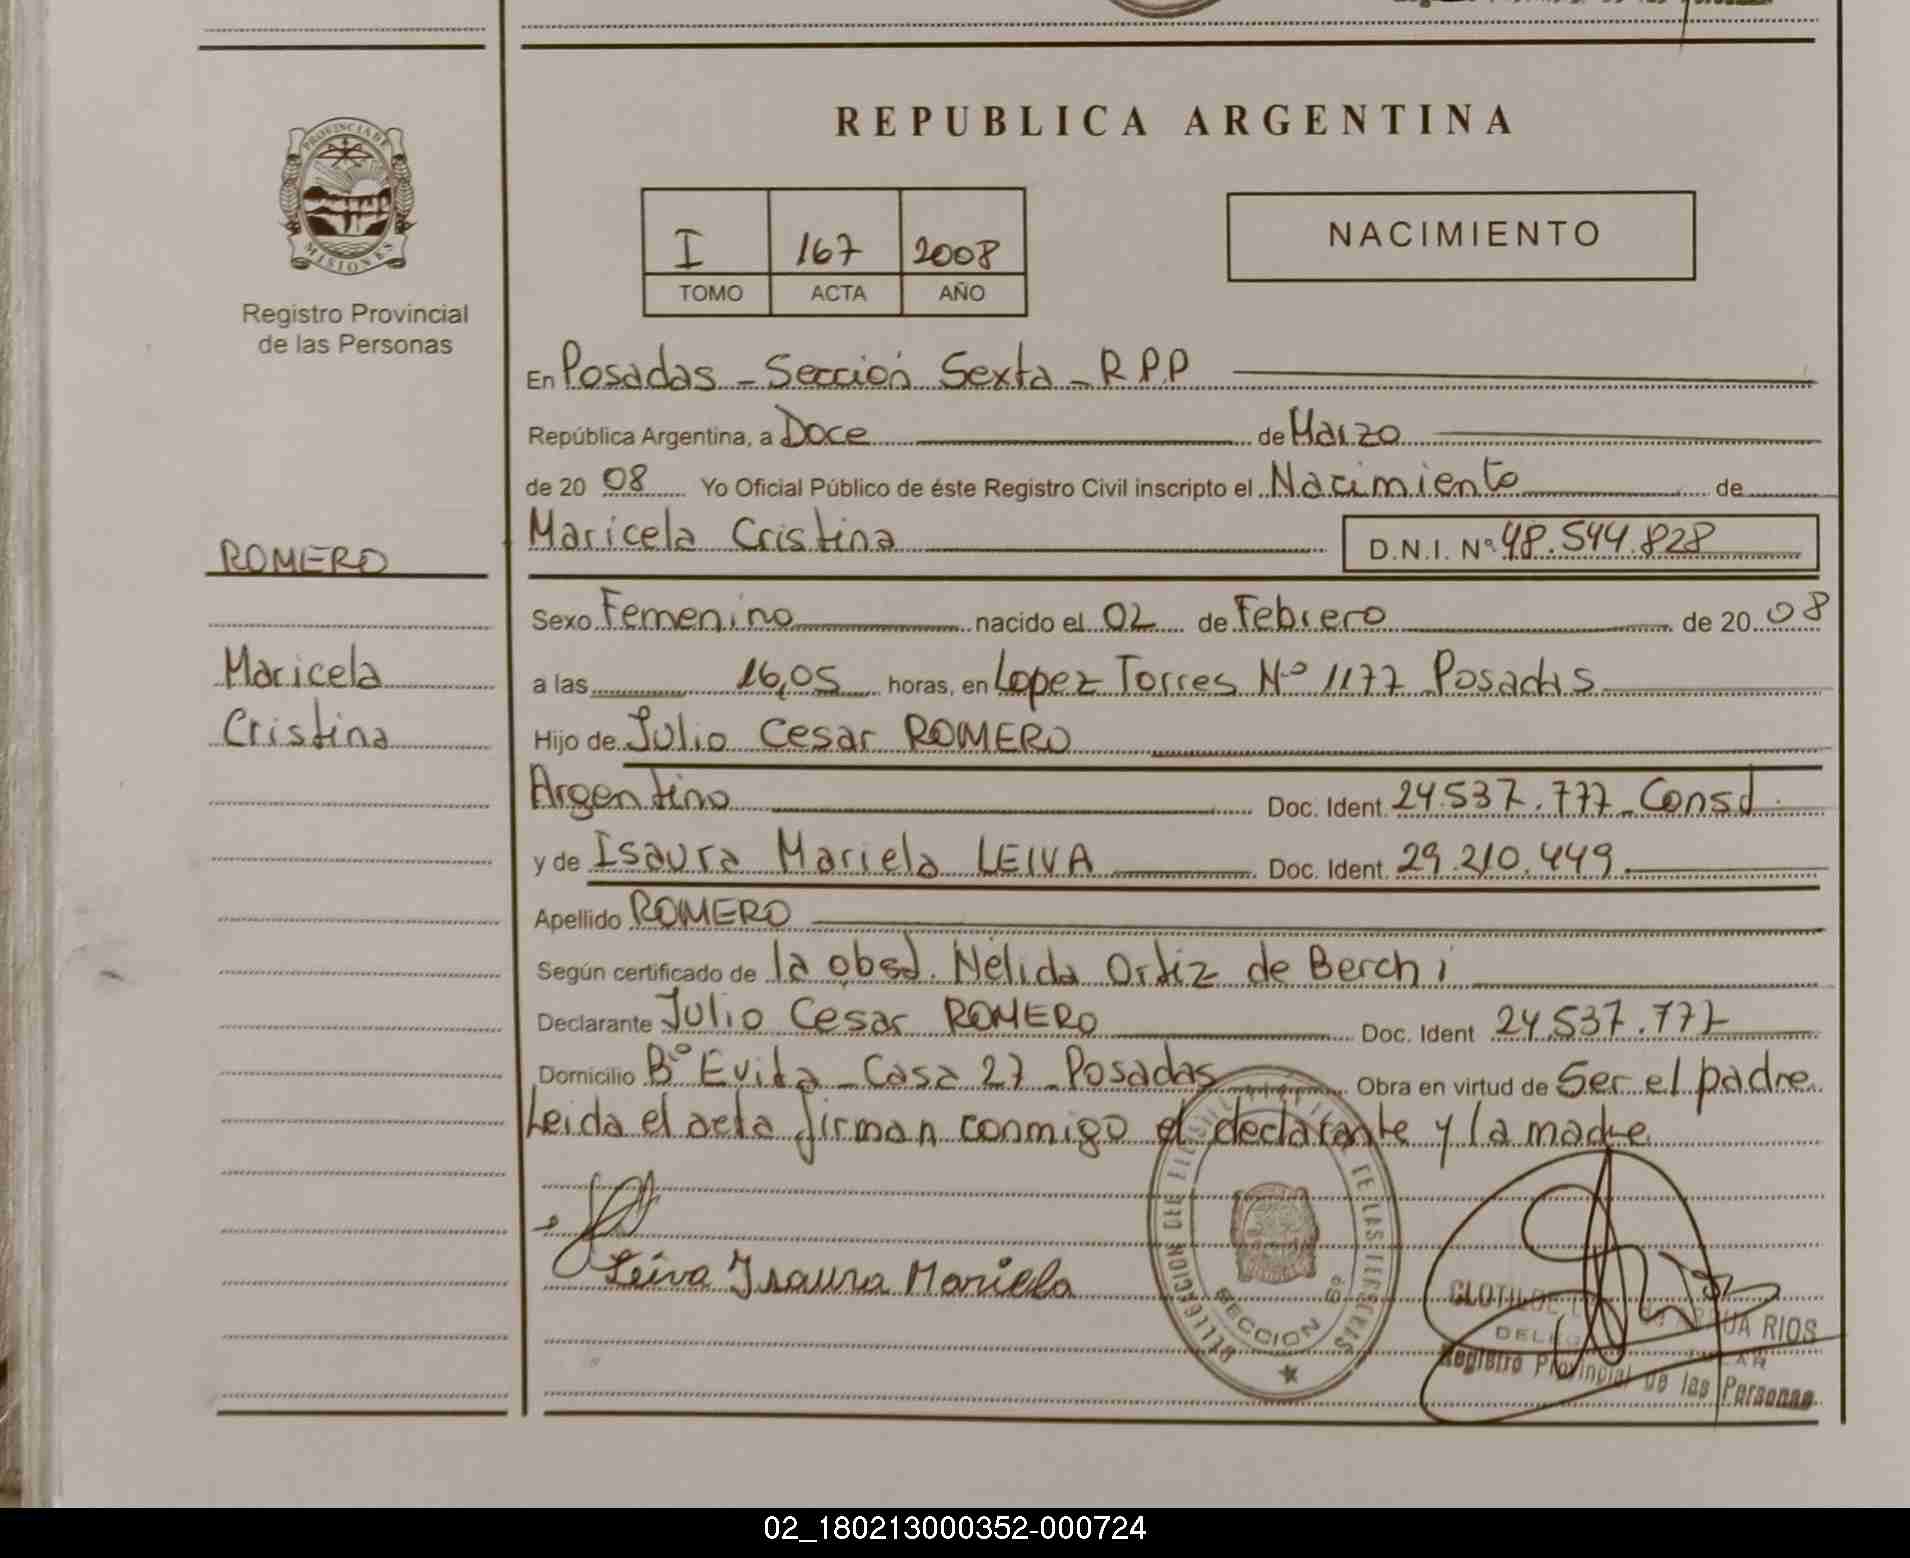 REPUBLICA ARGENTINA
PROVINCIA DE
MISIONES
Registro Provincial
de las Personas
I 167 2008
TOMO ACTA AÑO
NACIMIENTO
En Posadas - Sección Sexta - R.P.P
República Argentina, a Doce de Marzo
de 20 08 Yo Oficial Público de éste Registro Civil inscripto el Nacimiento de
Maricela Cristina D.N.I. Nº 48.544.828
ROMERO
Maricela
Cristina
Sexo Femenino nacido el 02 de Febrero de 20 08
a las 16,05 horas, en Lopez Torres Nº 1177 Posadas
Hijo de Julio Cesar ROMERO
Argentino Doc. Ident. 24.537.777 Consd.
y de Isaura Mariela LEIVA Doc. Ident. 29.210.449
Apellido ROMERO
Según certificado de la obsd. Nélida Ortiz de Berchi
Declarante Julio Cesar ROMERO Doc. Ident 24.537.777
Domicilio Bº Evita - Casa 27 - Posadas Obra en virtud de Ser el padre
Leida el acta firman conmigo el declarante y la madre
Leiva Isaura Mariela
SECCION 6º
RIOS
Registro Provincial de las Personas
02_180213000352-000724